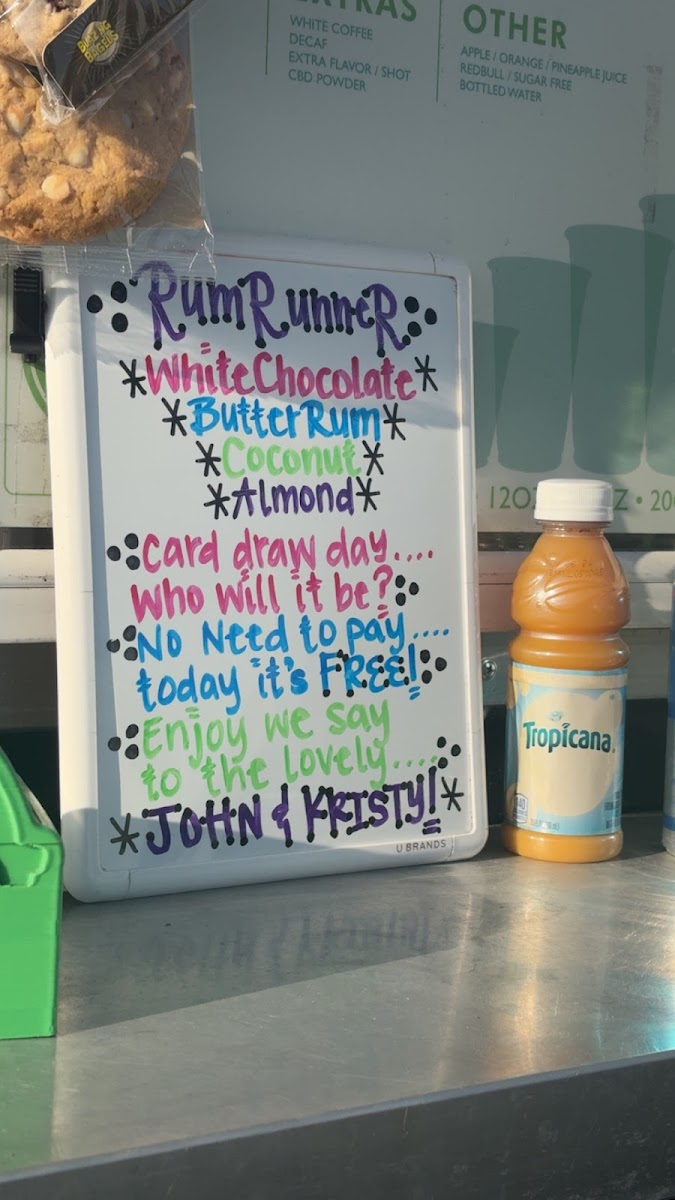 EXTRAS
WHITE COFFEE
DECAF
EXTRA FLAVOR / SHOT
CBD POWDER
OTHER
APPLE / ORANGE / PINEAPPLE JUICE
REDBULL / SUGAR FREE
BOTTLED WATER
RumRunneR
*WhiteChocolate*
*ButterRum*
*Coconut*
*Almond*
Card draw day....
Who will it be?
No Need to pay....
today it's FREE!
Enjoy we say
to the lovely....
*JOHN & KRISTY!*
U BRANDS
Tropicana
140